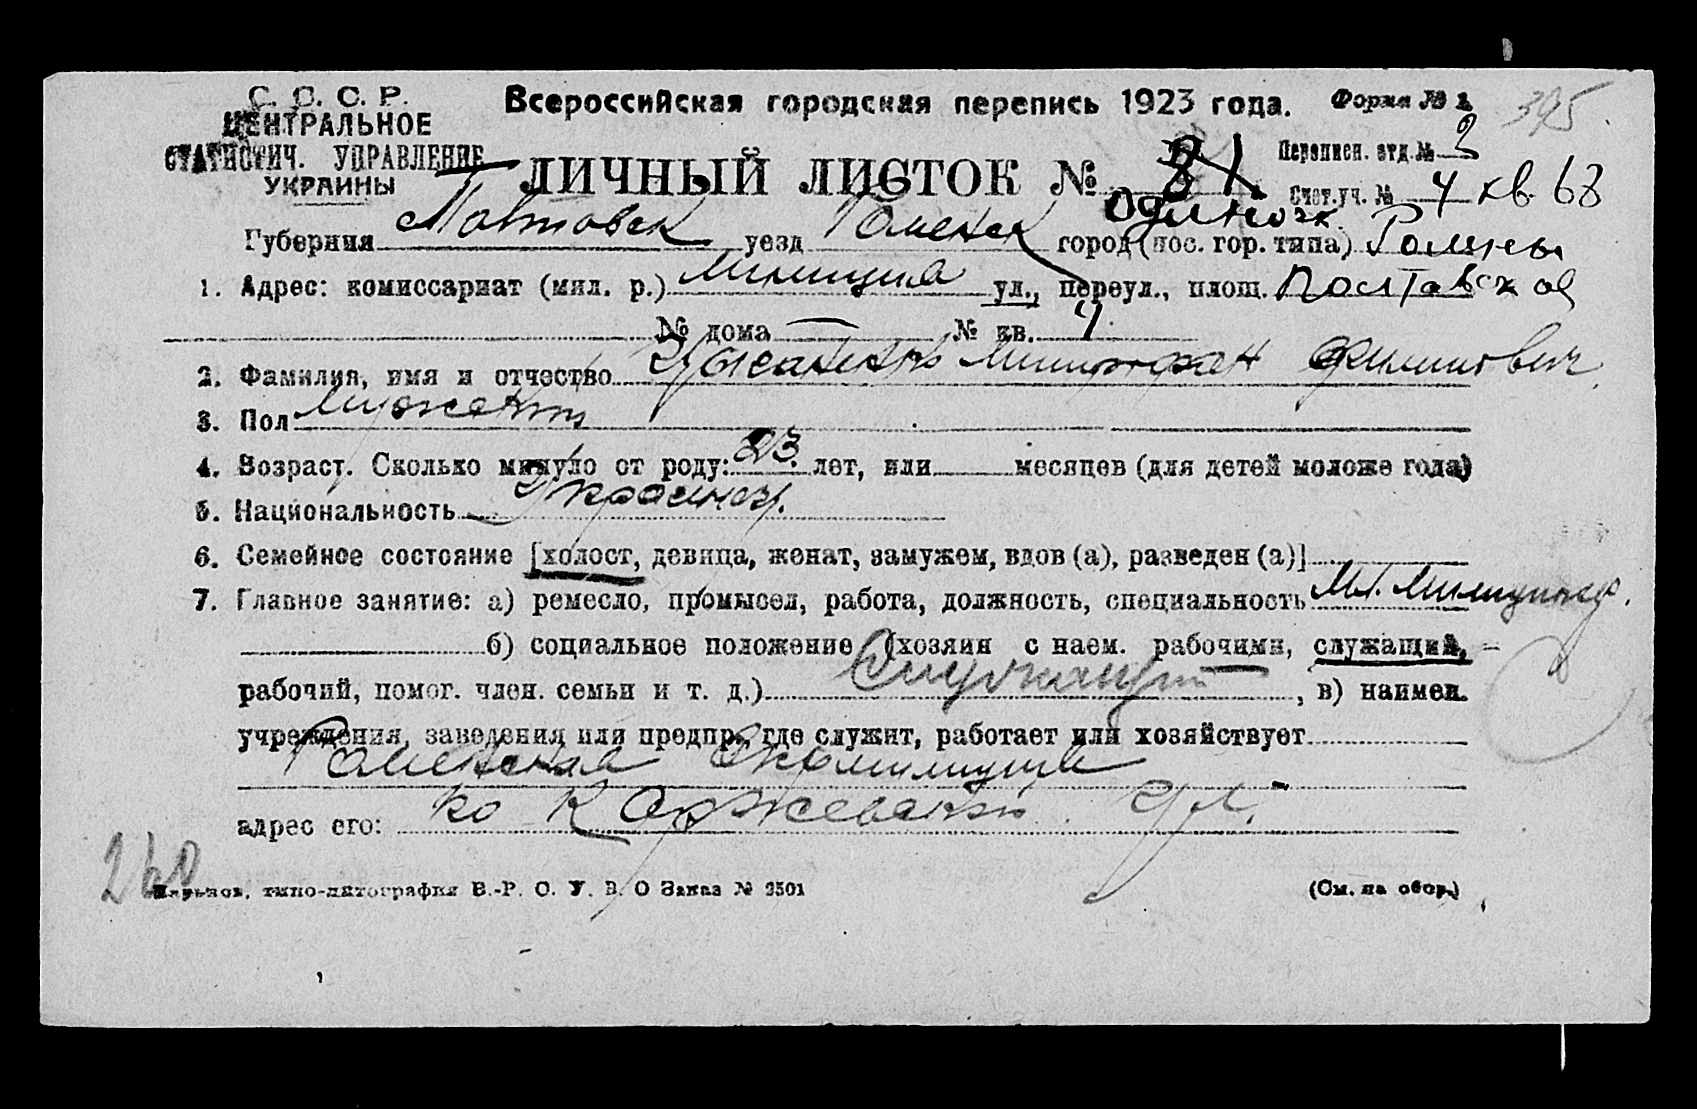 С. С. С. Р.
ЦЕНТРАЛЬНОЕ
СТАТИСТИЧ. УПРАВЛЕНИЕ
УКРАИНЫ
Всероссийская городская перепись 1923 года.
Форма № 1
395
ЛИЧНЫЙ ЛИСТОК №
Переписн. отд. № 2
Счет. уч. № 4 кв. 68
Губерния Полтовск уезд Роменск город (пос. гор. типа) Ромны
1. Адрес: комиссариат (мил. р.) милиция ул., переул., площ. Полтавская
№ дома — № кв. 4
2. Фамилия, имя и отчество Митрофан Филипович
3. Пол Мужской
4. Возраст. Сколько минуло от роду: 23. лет, или месяцев (для детей моложе года)
5. Национальность Украинец.
6. Семейное состояние [холост, девица, женат, замужем, вдов (а), разведен (а)]
7. Главное занятие: а) ремесло, промысел, работа, должность, специальность Мл. Милиционер.
б) социальное положение (хозяин с наем. рабочими, служащий,
рабочий, помог. член. семьи и т. д.) Служащий, в) наимен.
учреждения, заведения или предпр., где служит, работает или хозяйствует
Роменская Окрмилиция
адрес его: по Коржевской ул.
260
Харьков, типо-литография В.-Р. О. У. В. О Заказ № 3501
(См. на обор.)